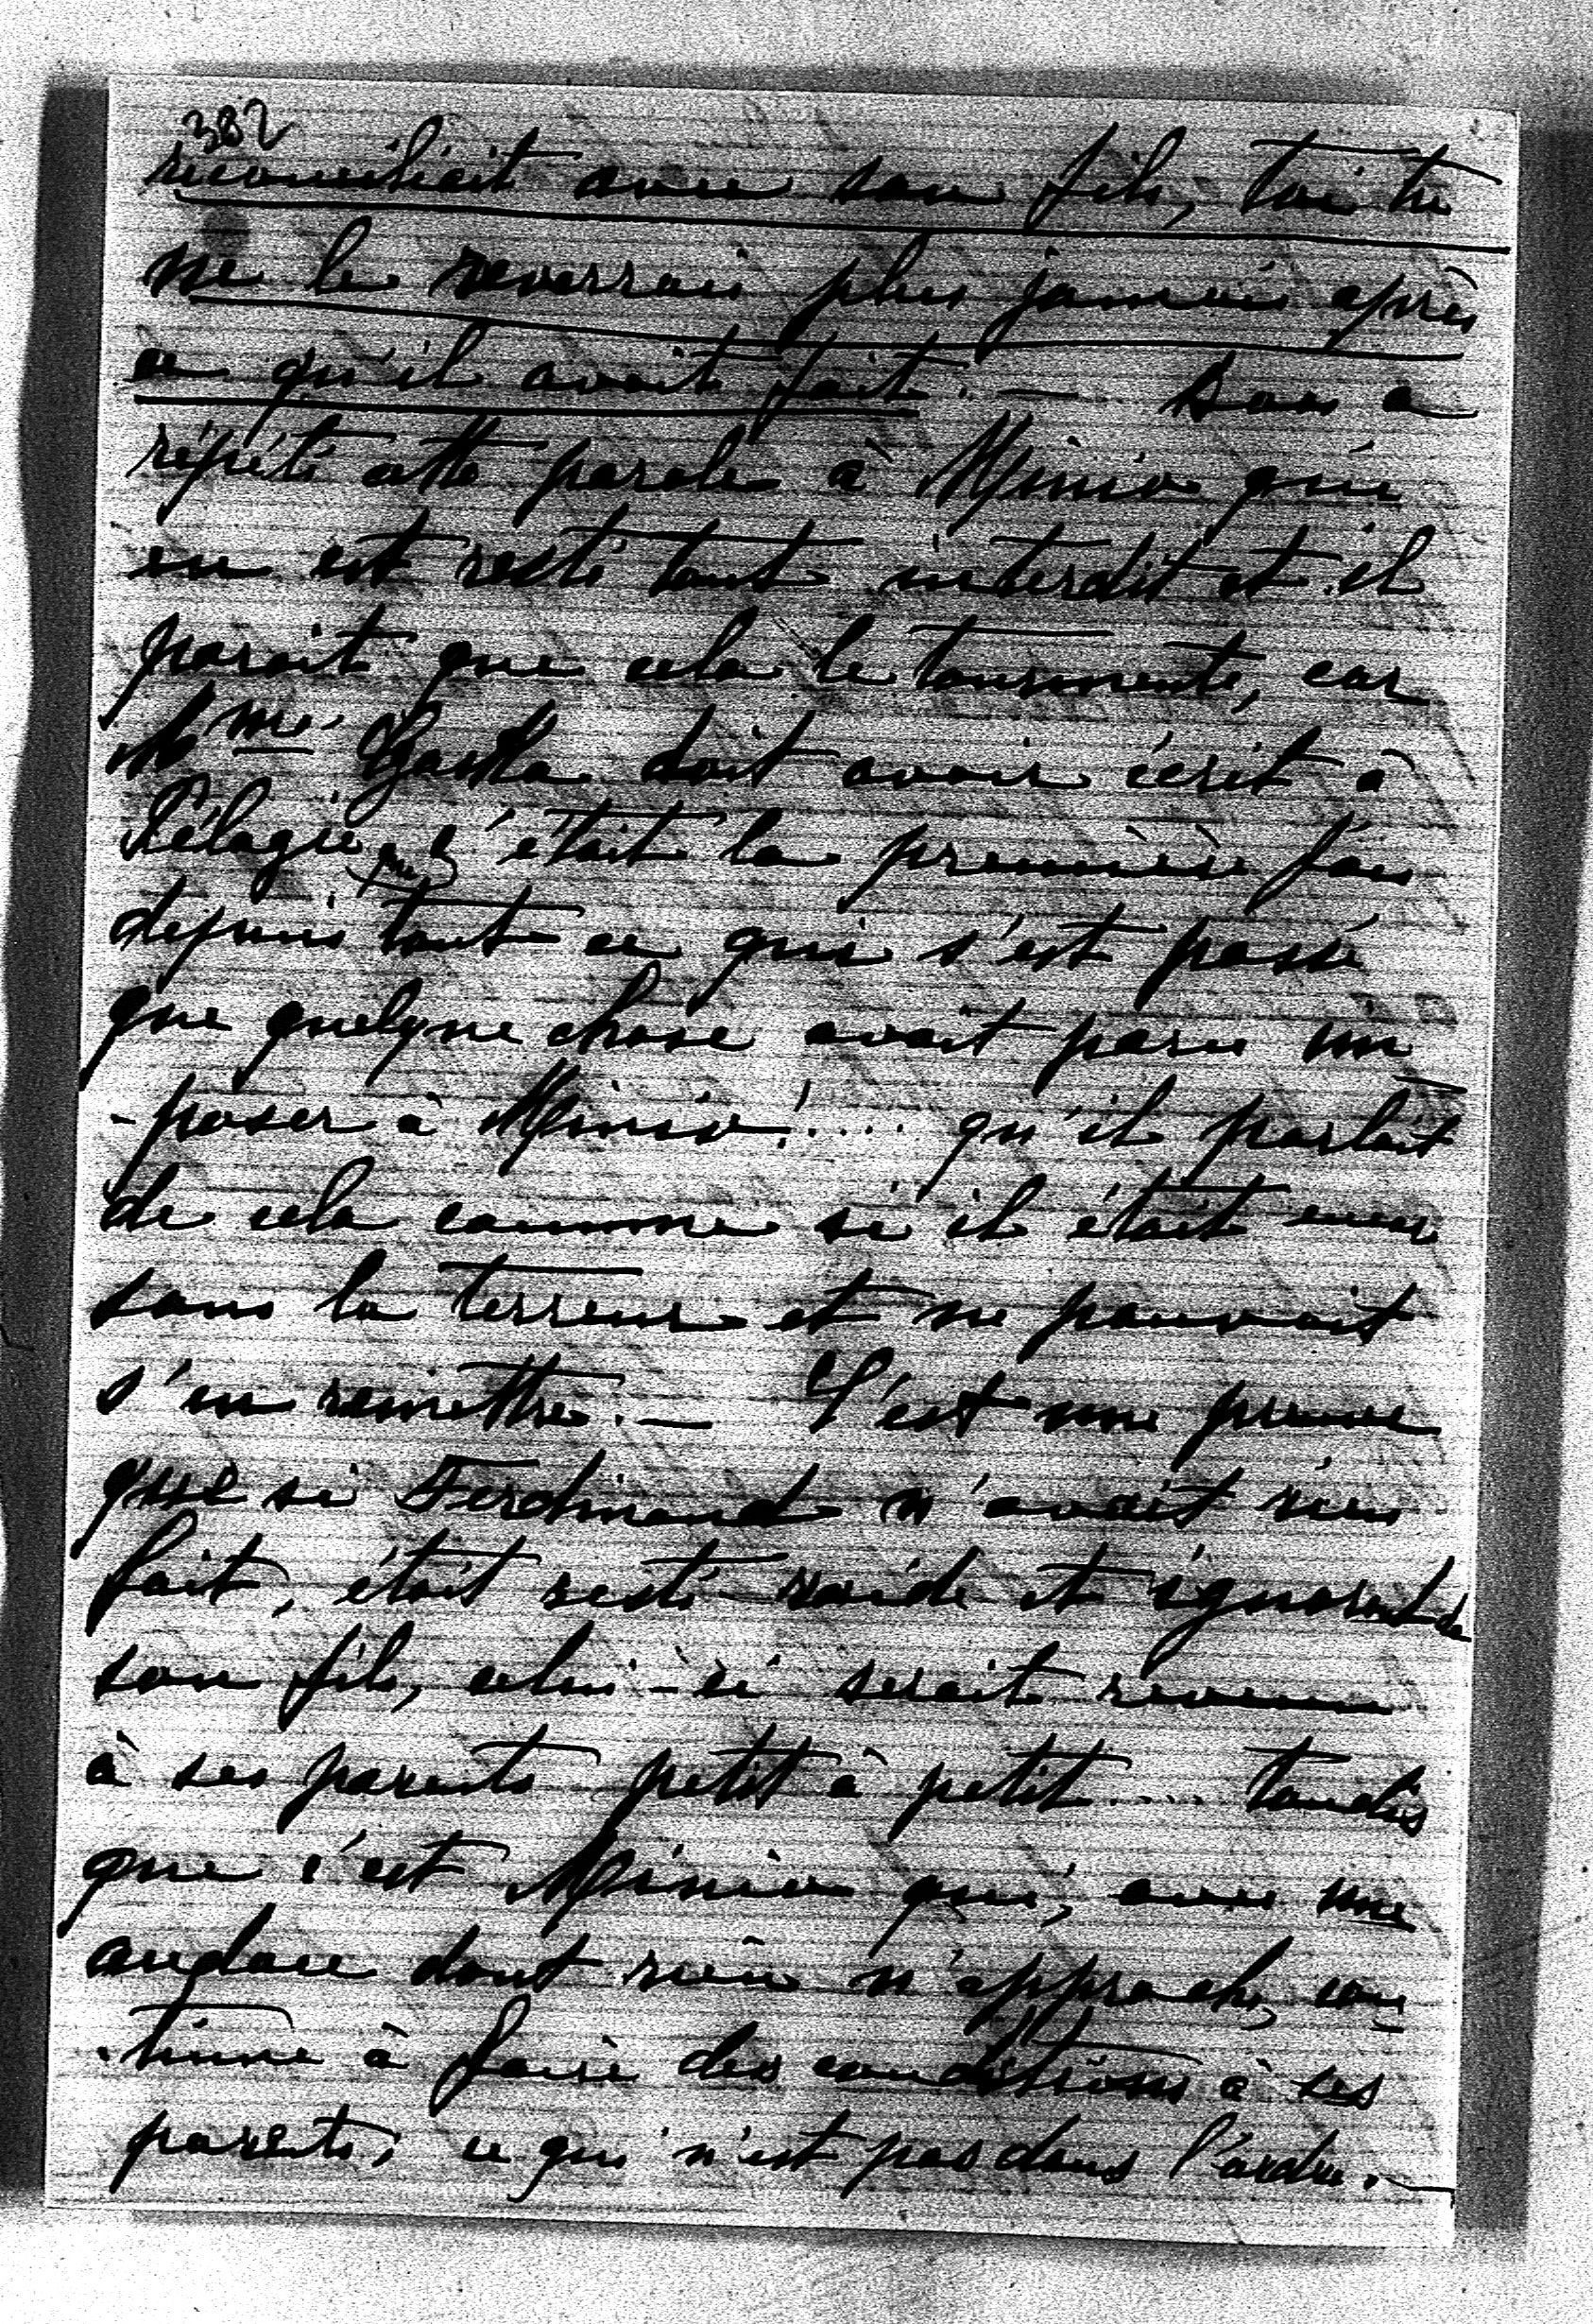 382
réconciliait avec son fils, toi tu
ne le reverrais plus jamais après
ce qu'il avait fait. — a
répété cette parole à Minio qui
en est resté tout interdit et il
parait que cela le tourmente, car
Mme. doit avoir écrit à
Pélagie que c'était la première fois
depuis tout ce qui s'est passé
que quelque chose avait paru im
-poser à Minio!.... qu'il parlait
de cela comme si il était
sous la terreur et ne pouvait
s'en remettre. — C'est une preuve
que si Ferdinand n'avait rien
fait, était resté roide et ignorant de
son fils, celui-ci serait revenu
à ses parents petit à petit.... tandis
que c'est Minio qui, avec une
audace dont rien n'approche, con
-tinue à faire des conditions à ses
parents; ce qui n'est pas dans l'ordre. —